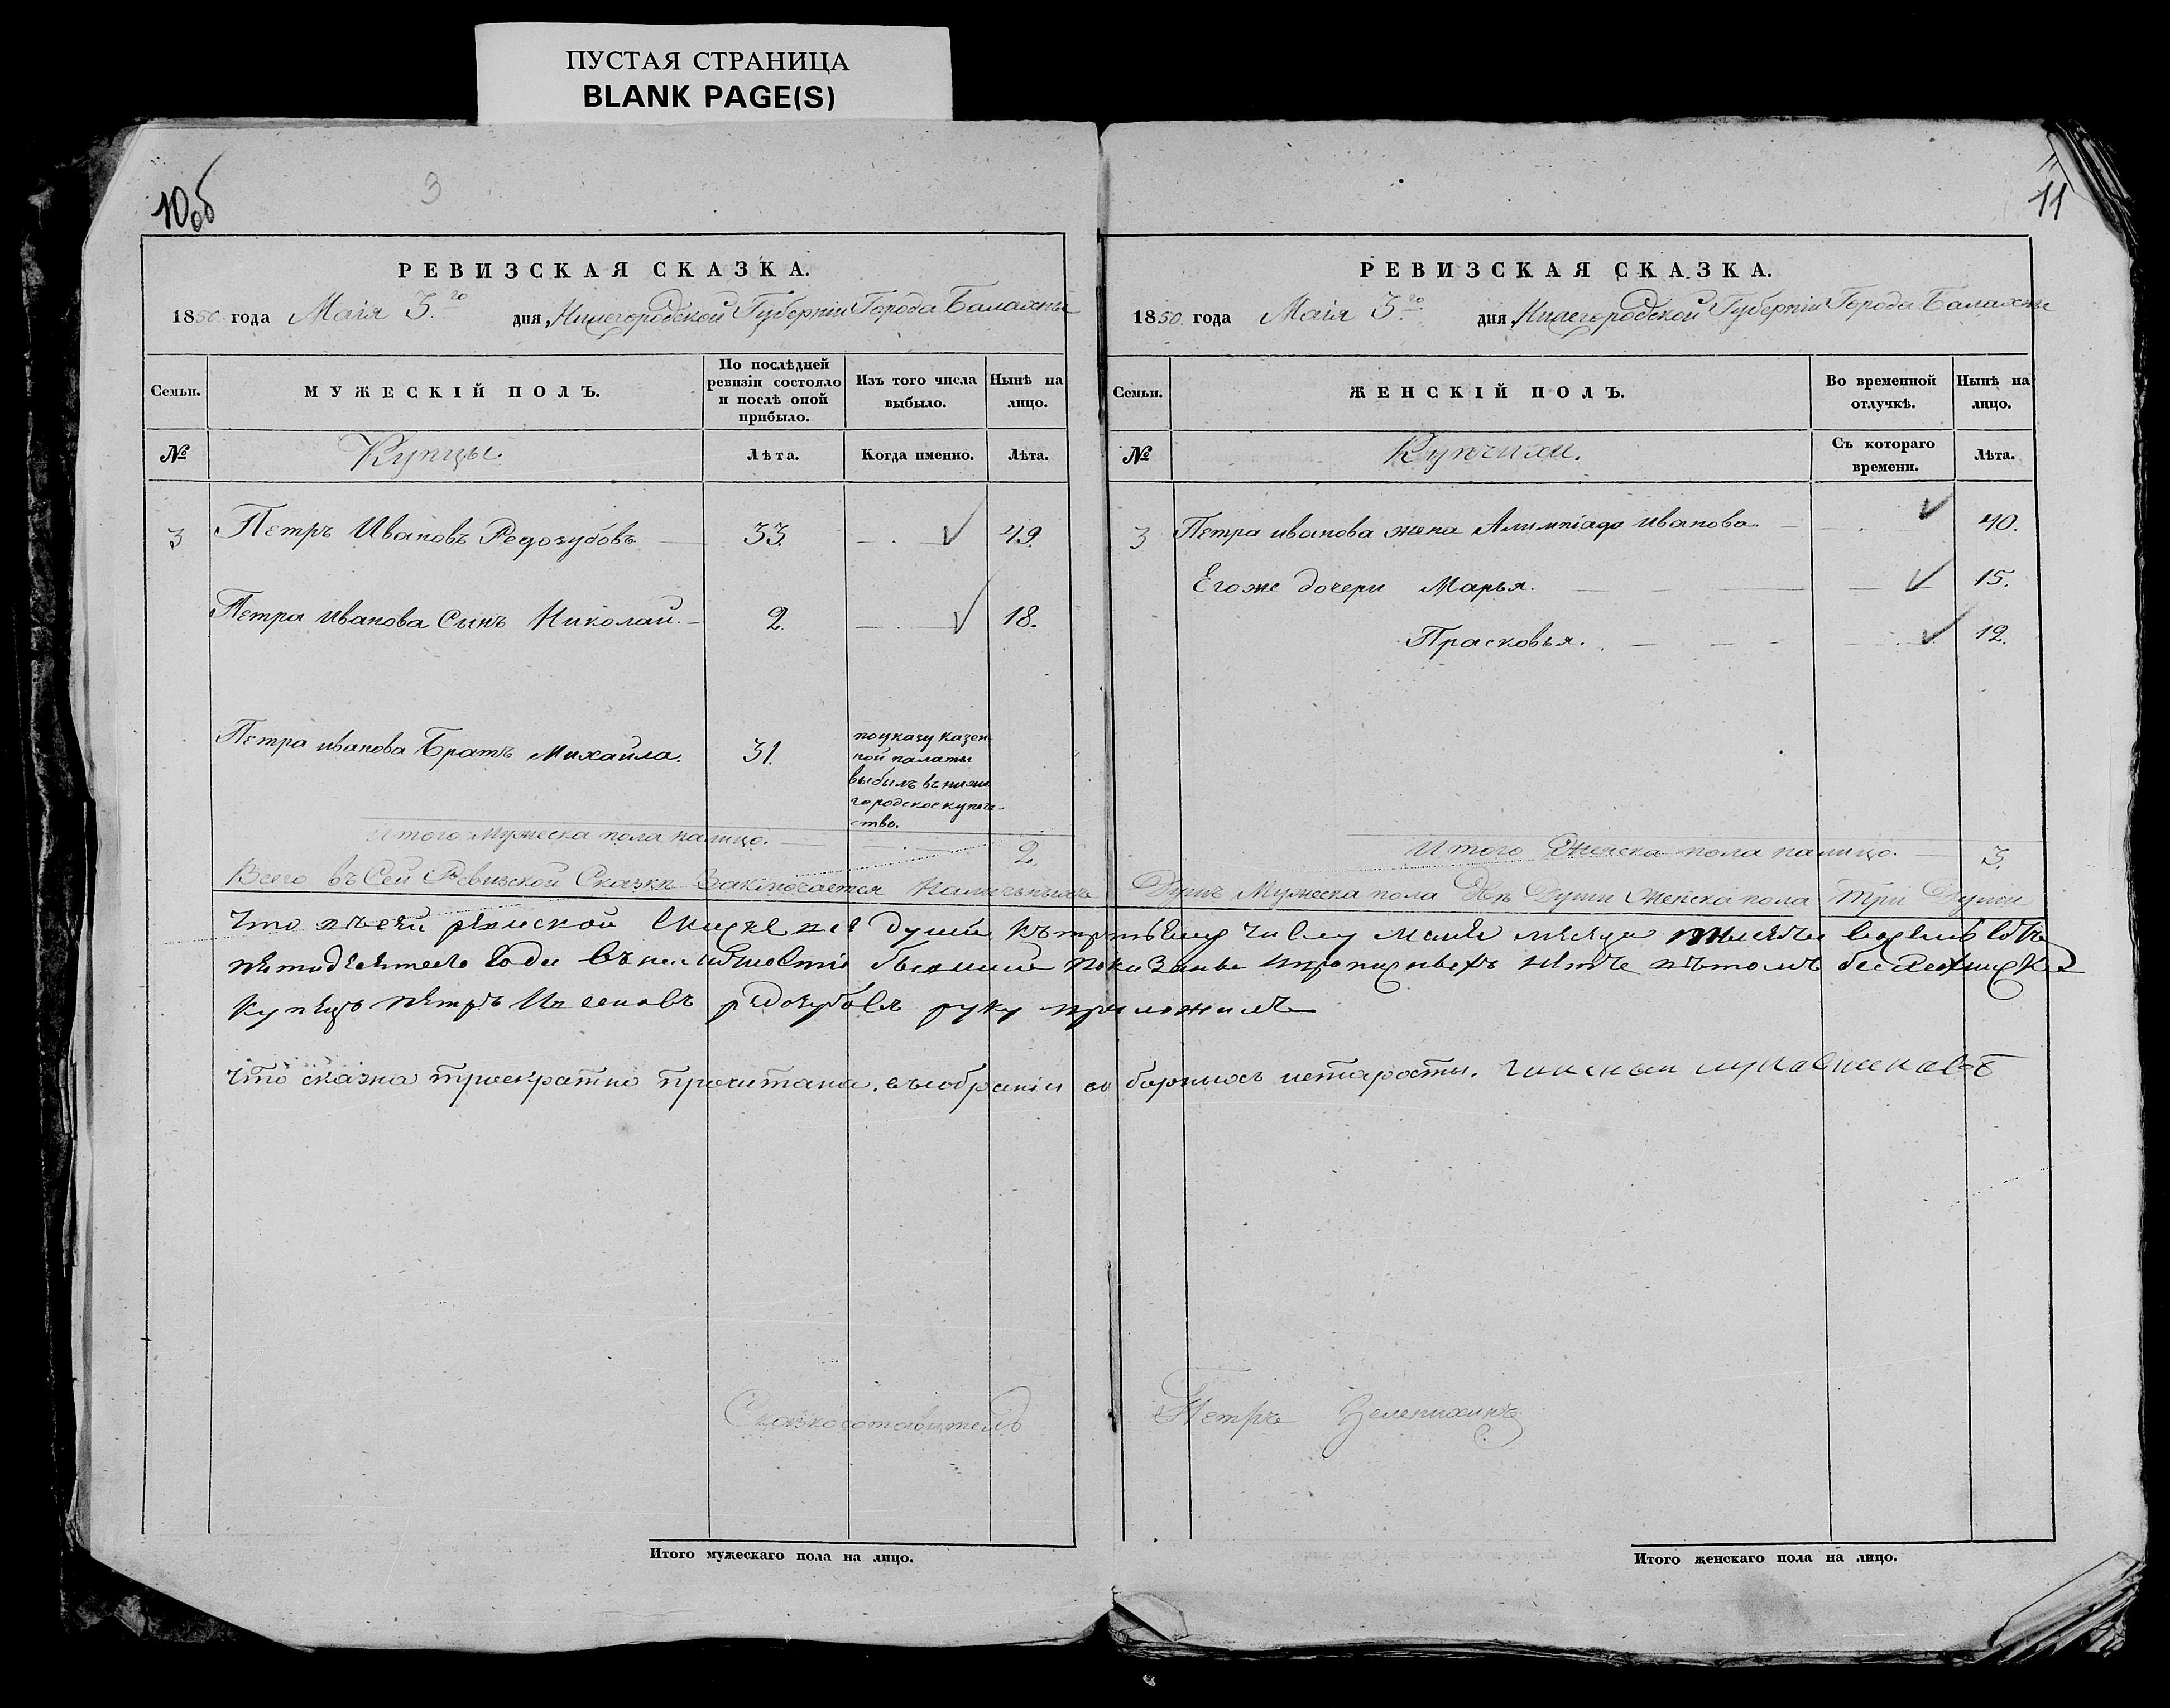 ПУСТАЯ СТРАНИЦА
BLANK PAGE(S)
10об
3
РЕВИЗСКАЯ СКАЗКА.
1850 года Маія 3.го дня, Нижегородской Губерніи Города Балахны
Семьи.
МУЖЕСКІЙ ПОЛЪ.
По послѣдней ревизіи состояло и послѣ оной прибыло.
Изъ того числа выбыло.
Нынѣ на лицо.
№
Купцы.
Лѣта.
Когда именно.
Лѣта.
3 Петръ Ивановъ Редозубовъ 33. 49.
Петра Иванова Сынъ Николай. 2. 18.
Петра иванова Братъ Михаила. 31.
по указу казен-
ной палаты
выбылъ въ ниже
городское купече-
ство.
Итого Мужеска пола налицо. 2.
11
РЕВИЗСКАЯ СКАЗКА.
1850. года Маія 3.го дня, Нижегородской Губерніи Города Балахны
Семьи.
ЖЕНСКІЙ ПОЛЪ.
Во временной отлучкѣ.
Нынѣ на лицо.
№
Купчихи.
Съ котораго времени.
Лѣта.
3 Петра иванова жена Алимпіада иванова. 40.
Его же дочери Марья. 15.
Прасковья. 12.
Итого Женска пола налицо. 3.
Всего въ Сей Ревизской Сказки Заключается Наличныхъ Душъ Мужеска пола Двѣ Души Женска пола Три Души
что въ сей скаске все души къ третьему числу маия месяца тысяча восемь сотъ
пятидесятого года въ наличности бывшие показаны и прописныхъ нетъ въ томъ
купецъ петръ Ивановъ редозубовъ руку приложилъ
что сказка троекратно прочитана. въ собраніи
Сказкосоставитель Петръ Зелепихинъ.
Итого мужескаго пола на лицо.
Итого женскаго пола на лицо.